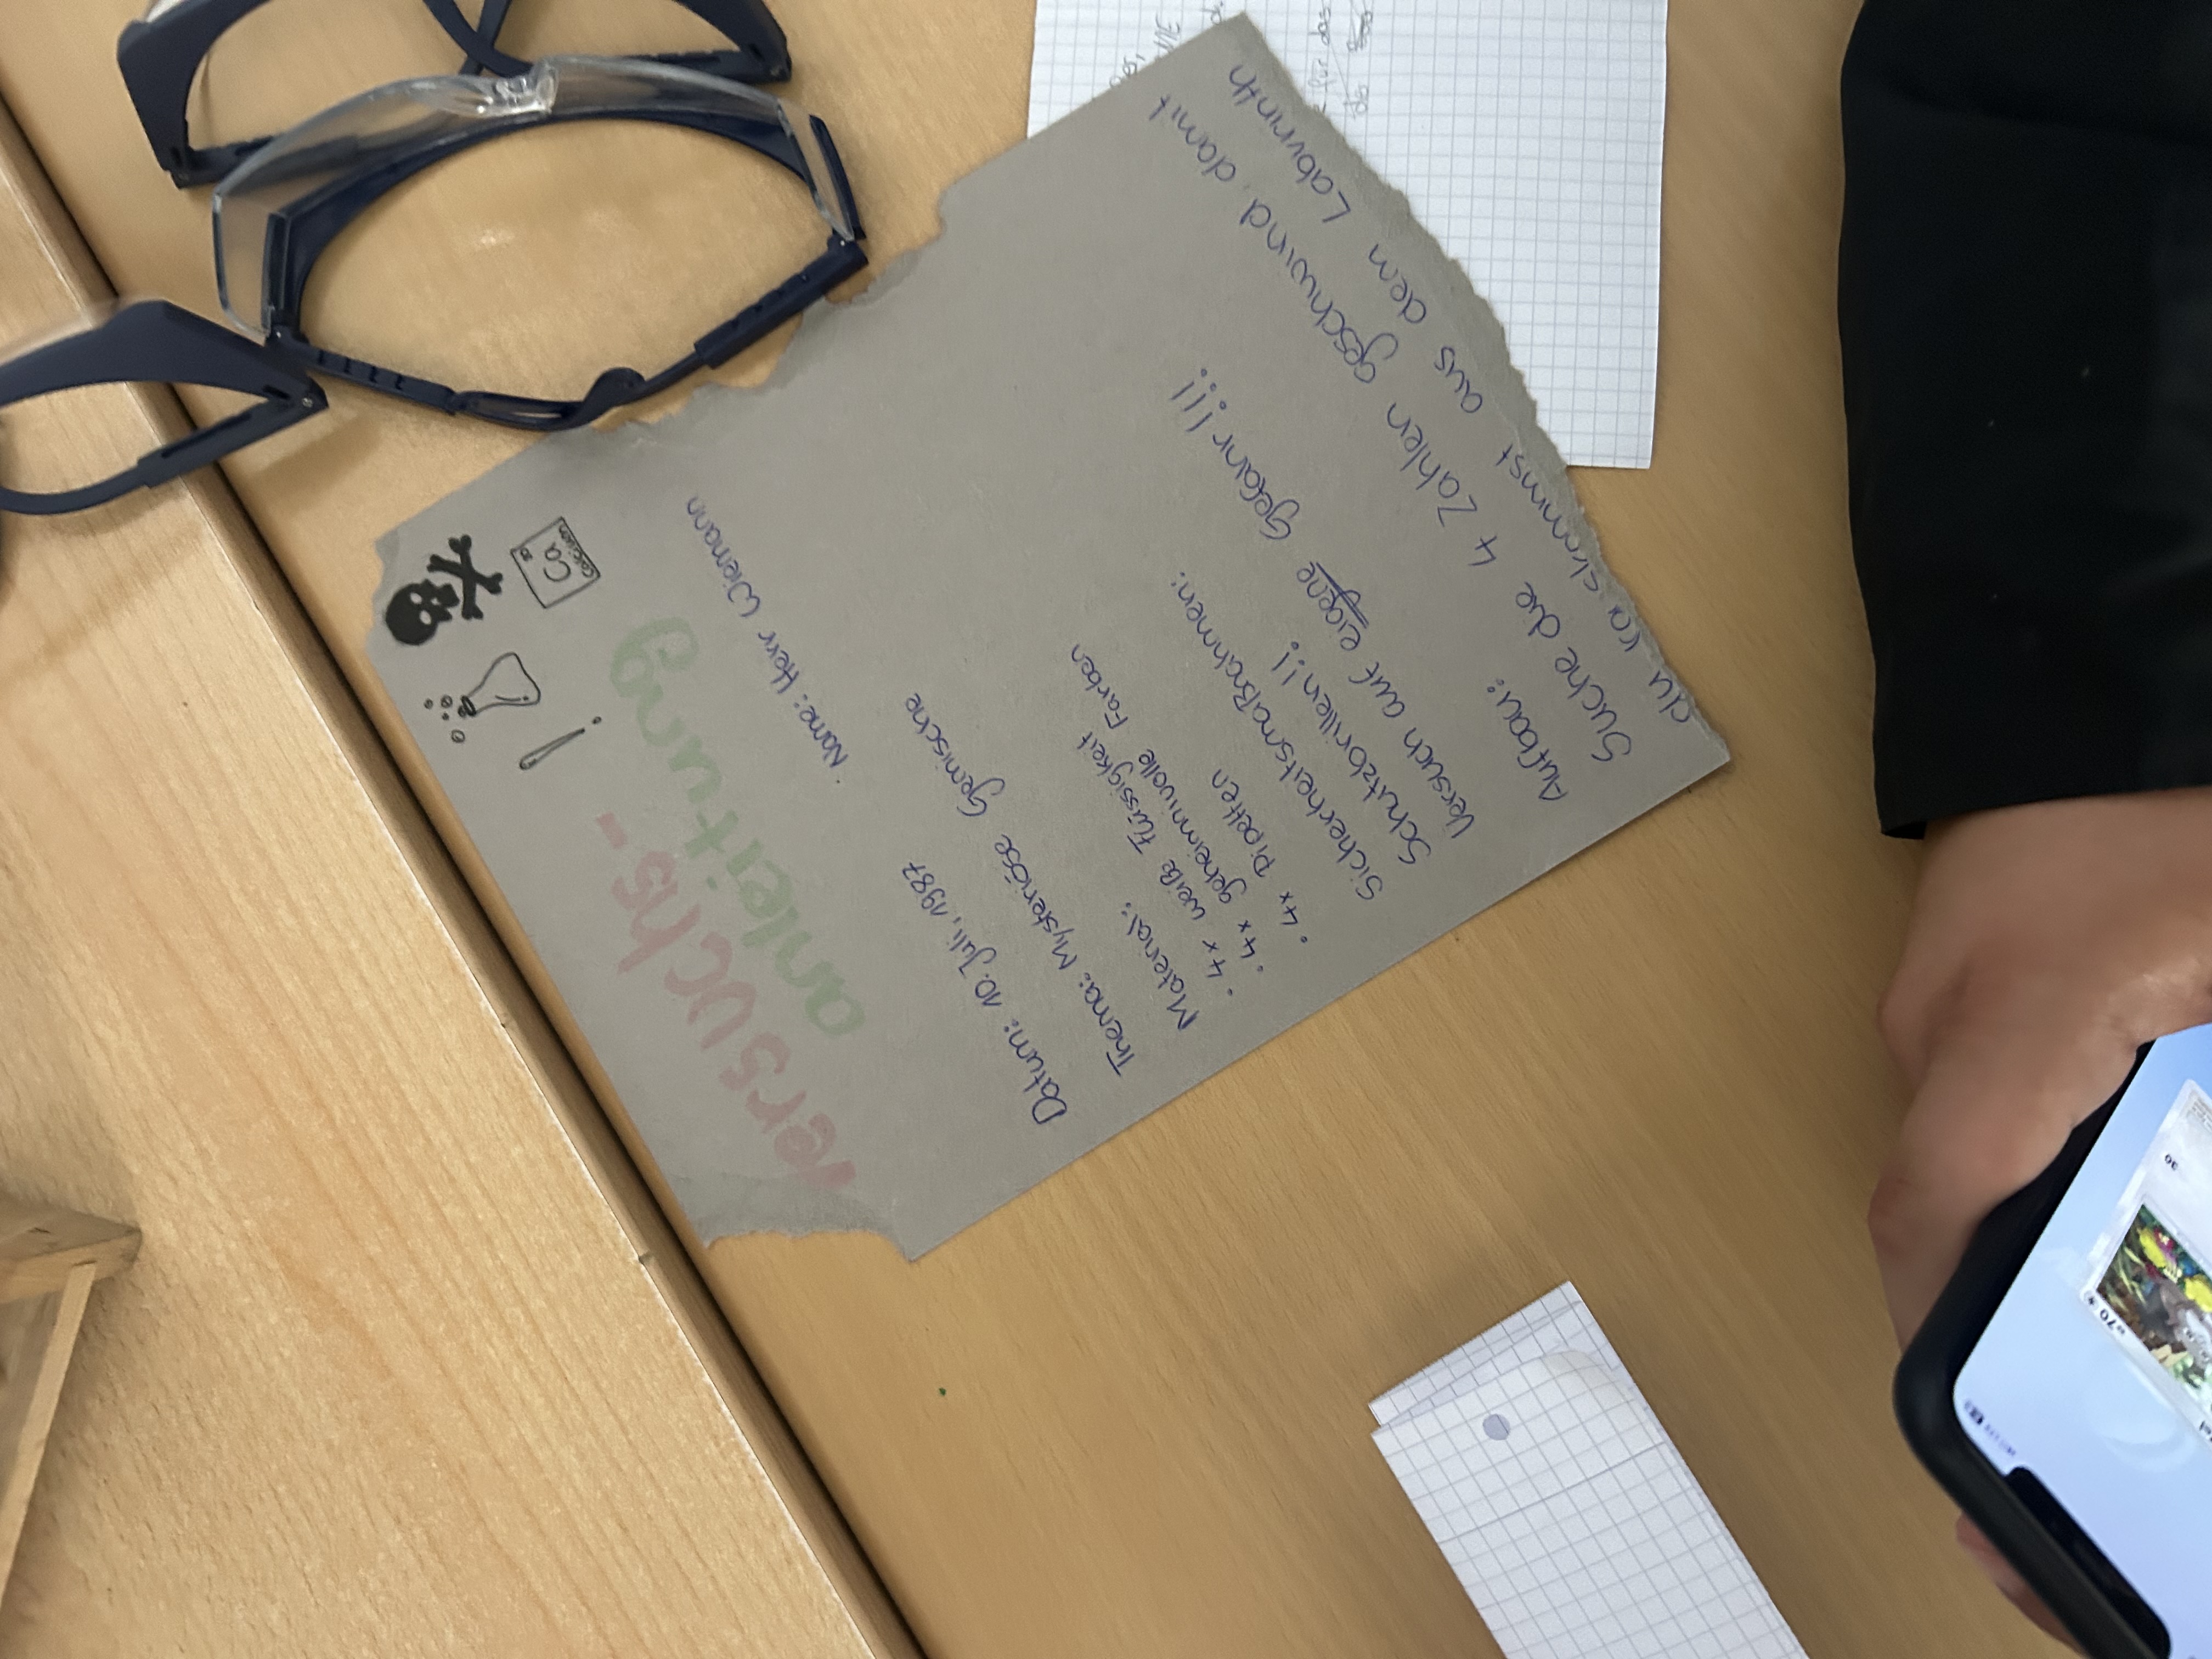 Versuchs-
anleitung
Ca
Calcium
Name: Herr Wiemann
Datum: 10. Juli, 1987
Thema: Mysteriöse Gemische
Material:
· 4x weiße Flüssigkeit
· 4x geheimnivolle Farben
· 4x Pipetten
Sicherheitsmaßnahmen:
Schutzbrillen!!
Versuch auf eigene Gefahr!!!
Aufbau:
Suche die 4 Zahlen geschwind, damit
du kommst aus dem Labyrinth
für das
30
70